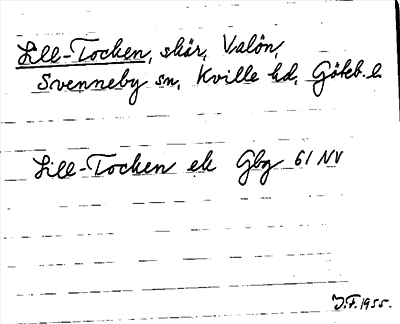 Lill-Tocken, skär, Valön,
Svenneby sn, Kville hd, Göteb. l.
Lill-Tocken ek Gbg 61 NV
J.F. 1955.